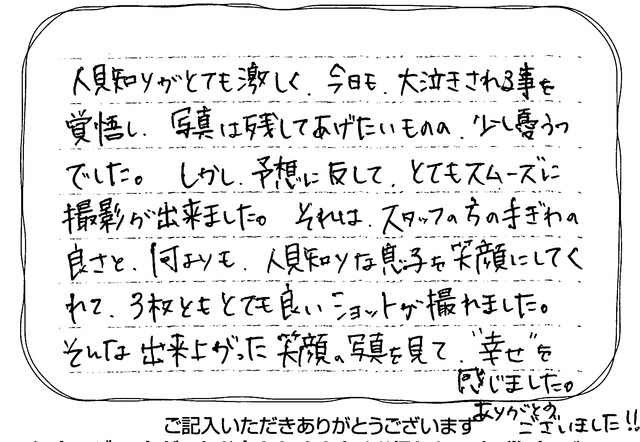 人見知りがとても激しく、今日も、大泣きされる事を
覚悟し、写真は残してあげたいものの、少し憂うつ
でした。しかし、予想に反して、とてもスムーズに
撮影が出来ました。それは、スタッフの方の手ぎわの
良さと、何よりも、人見知りな息子を笑顔にしてく
れて、3枚ともとても良いショットが撮れました。
そんな出来上がった笑顔の写真を見て、"幸せ"を
感じました。
ありがとう
ございました!!
ご記入いただきありがとうございます